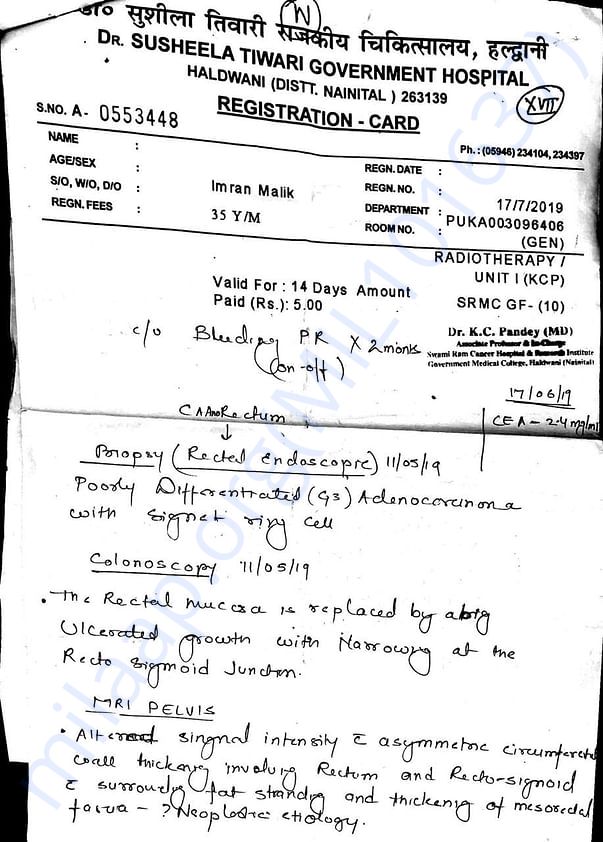 डा० सुशीला तिवारी राजकीय चिकित्सालय, हल्द्वानी
(N)
DR. SUSHEELA TIWARI GOVERNMENT HOSPITAL
HALDWANI (DISTT. NAINITAL ) 263139
XVII
S.NO. A- 0553448
REGISTRATION - CARD
Ph. : (05946) 234104, 234397
NAME :
AGE/SEX :
S/O, W/O, D/O : Imran Malik
REGN. FEES : 35 Y/M
REGN. DATE :
REGN. NO. : 17/7/2019
DEPARTMENT : PUKA003096406
ROOM NO. : (GEN)
RADIOTHERAPY /
UNIT I (KCP)
Valid For : 14 Days Amount
Paid (Rs.): 5.00
SRMC GF- (10)
Dr. K.C. Pandey (MD)
Associate Professor & In-Charge
Swami Ram Cancer Hospital & Research Institute
Government Medical College, Haldwani (Nainital)
c/o Bleeding PR X 2 monks
(on-off)
17/06/19
CEA - 2.4 mg/ml
CA AnoRectum
↓
Biopsy (Rectal Endoscopic) 11/05/19
Poorly Differentiated (G3) Adenocarcinoma
with signet ring cell
Colonoscopy 11/05/19
• The Rectal mucosa is replaced by a big
Ulcerated growth with Narrowing at the
Recto sigmoid Junction.
MRI PELVIS
• Altered singnal intensity c asymmetric circumferential
wall thickening involving Rectum and Recto-signoid
c surrounding fat standing and thickening of mesorectal
fascia - ? Neoplastic etiology.
milaap.org(MIL101637)